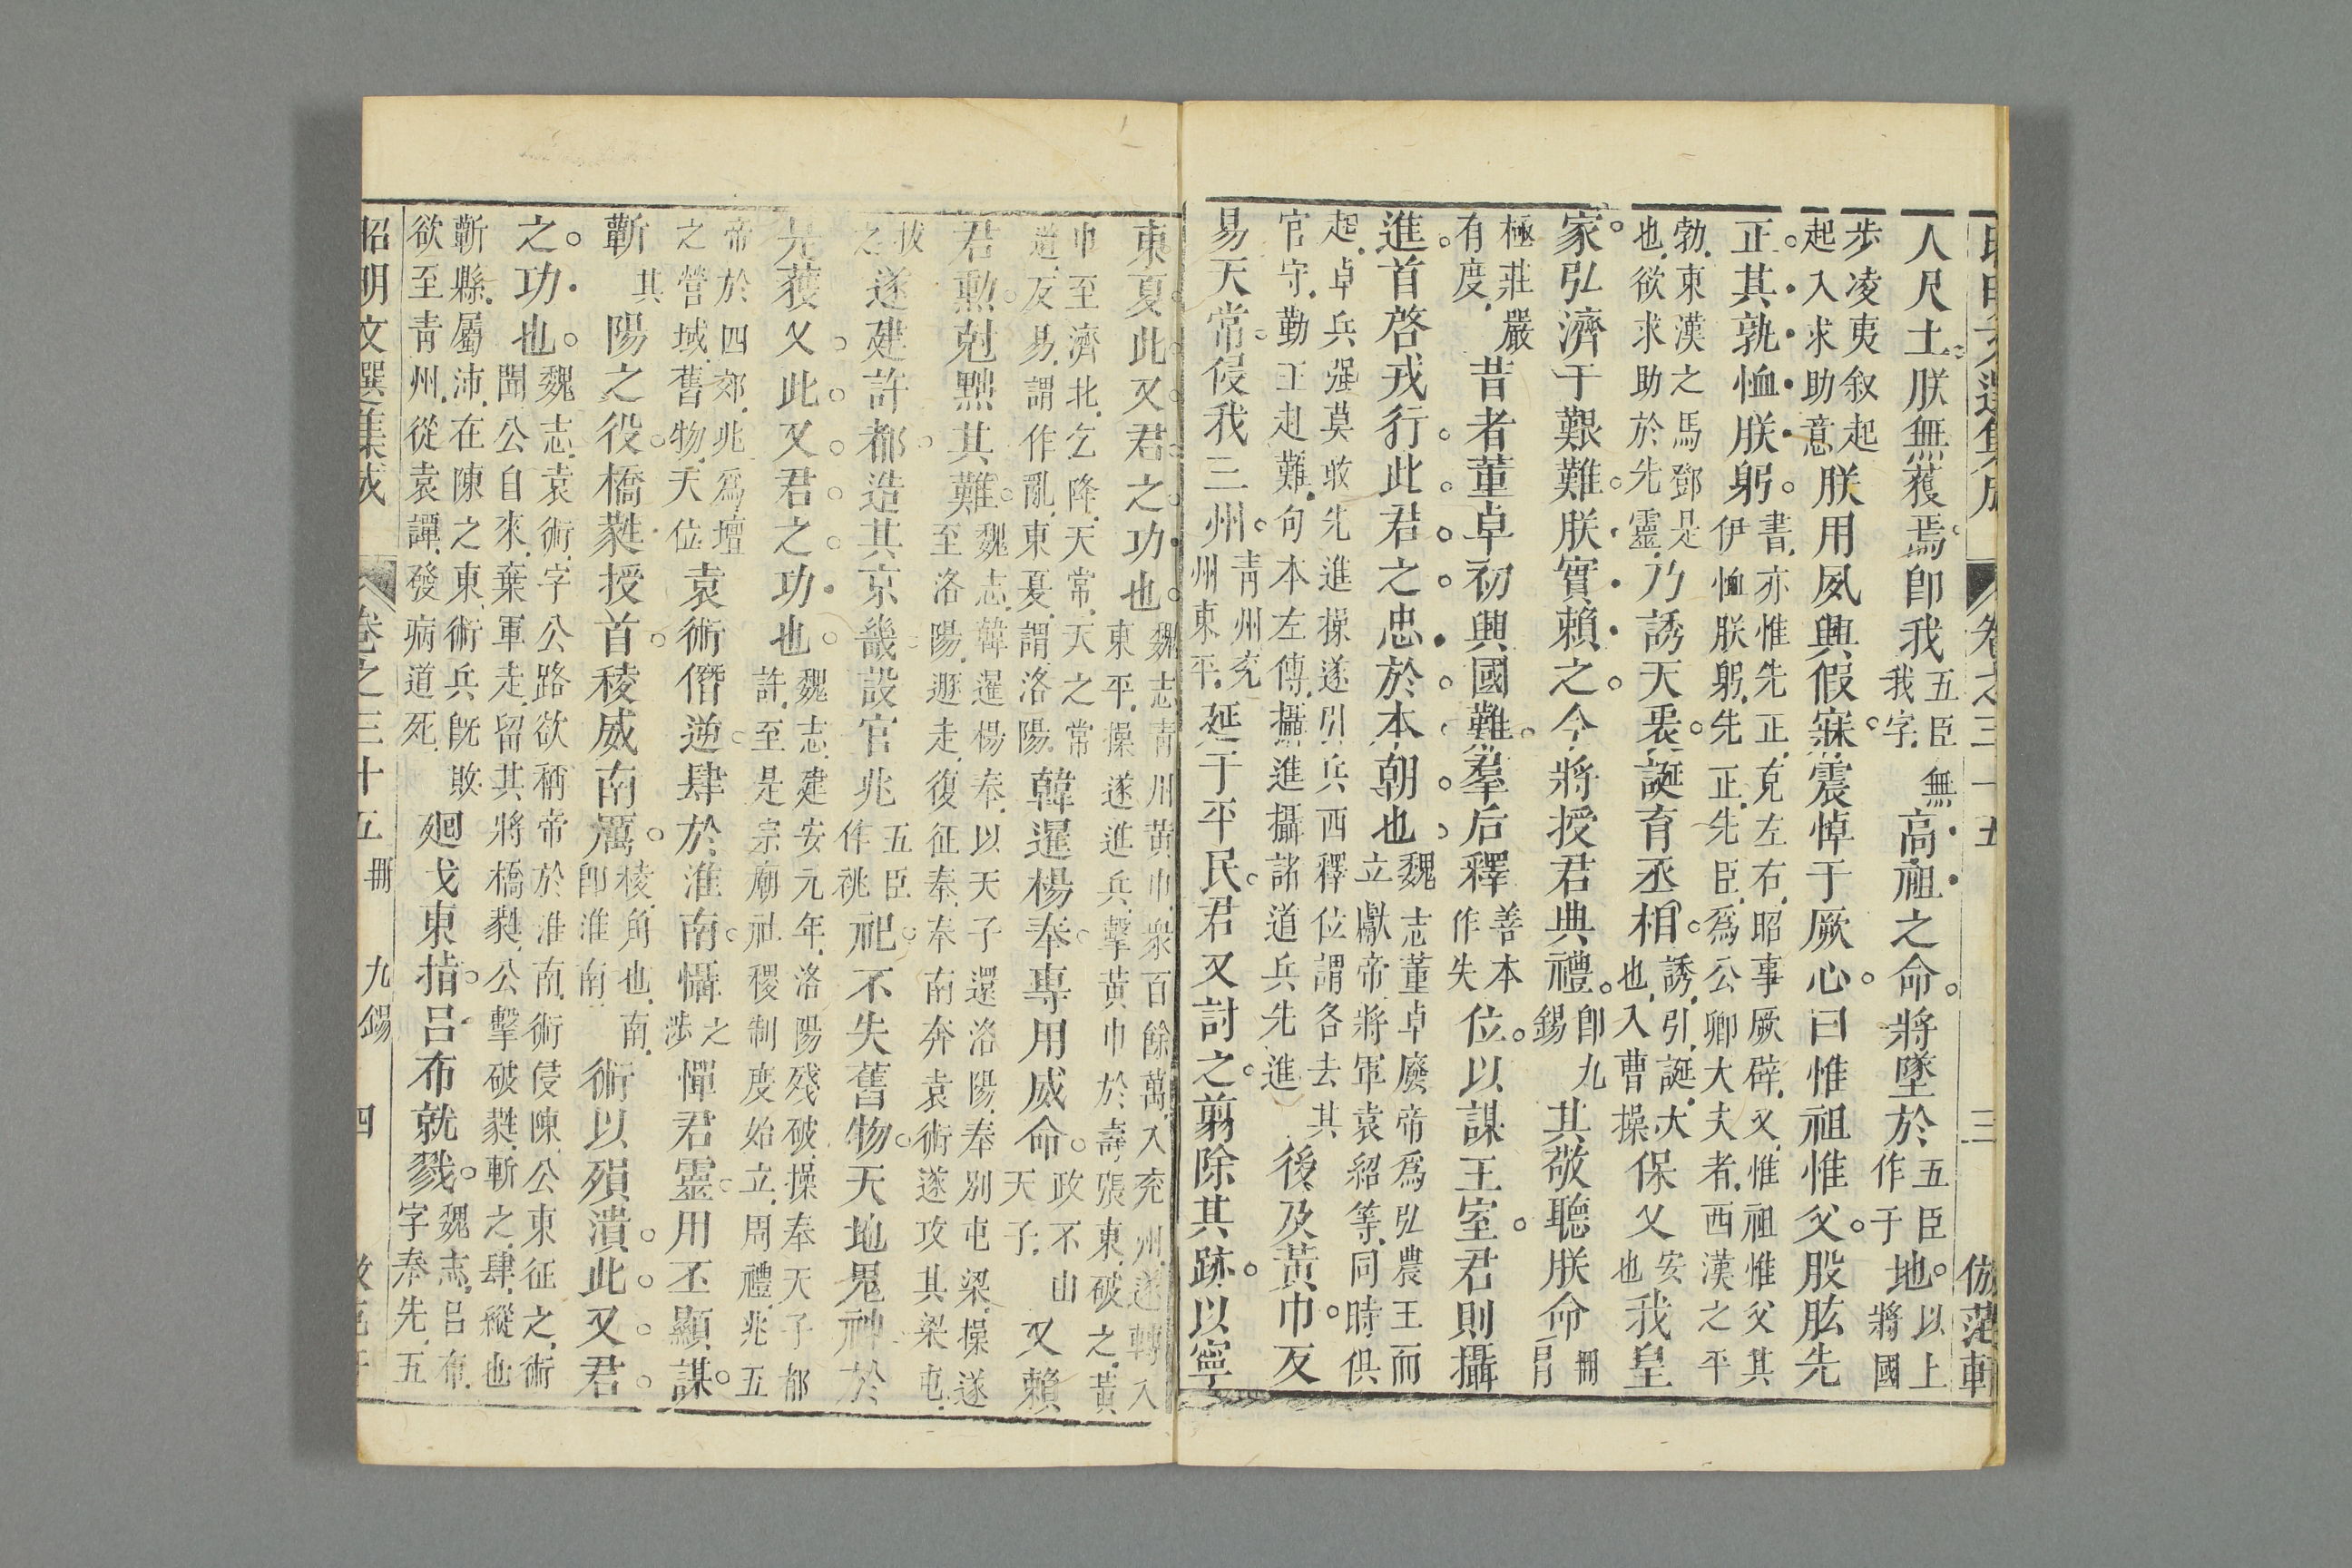 昭明文選集成 卷之三十五 三 倣范軒
人尺土朕無獲焉即我五臣無我字高祖之命將墜於五臣作于地以上將國
步凌夷叙起起入求助意朕用夙興假寐震悼于厥心曰惟祖惟父股肱先
正其孰恤朕躬書亦惟先正克左右昭事厥辟又惟祖惟父其伊恤朕躬先正先臣爲公卿大夫者西漢之平
勃東漢之馬鄧是也欲求助於先靈乃誘天衷誕育丞相誘引誕大也入曹操保乂安也我皇
家弘濟于艱難朕實賴之今將授君典禮即九錫其敬聽朕命冊冐
極莊嚴有度昔者董卓初興國難羣后釋善本作失位以謀王室君則攝
進首啓戎行此君之忠於本朝也魏志董卓廢帝爲弘農王而立獻帝將軍袁紹等同時俱
起卓兵强莫敢先進操遂引兵西釋位謂各去其官守勤王赴難句本左傳攝進攝諸道兵先進後及黃巾反
易天常侵我三州青州兖州東平延于平民君又討之剪除其跡以寧
東夏此又君之功也魏志青州黃巾衆百餘萬入兖州遂轉入東平操遂進兵擊黃巾於壽張東破之黃
巾至濟北乞降天常天之常道反易謂作亂東夏謂洛陽韓暹楊奉專用威命政不由天子又賴
君勲剋黜其難魏志韓暹楊奉以天子還洛陽奉別屯梁操遂至洛陽遁走復征奉奉南奔袁術遂攻其梁屯
拔之遂建許都造其京畿設官兆五臣作祧祀不失舊物天地鬼神於
是獲乂此又君之功也魏志建安元年洛陽殘破操奉天子都許至是宗廟社稷制度始立周禮兆五
帝於四郊兆爲壇之營域舊物天位袁術僭逆肆於淮南懾之涉憚君靈用丕顯謀
蘄其陽之役橋蕤授首稜威南厲稜角也南即淮南術以殞潰此又君
之功也魏志袁術字公路欲稱帝於淮南術侵陳公東征之術聞公自來棄軍走留其將橋蕤公擊破蕤斬之肆縱也
蘄縣屬沛在陳之東術兵旣敗欲至青州從袁譚發病道死廻戈東指呂布就戮魏志呂布字奉先五
昭明文選集成 卷之三十五 冊 九錫 四